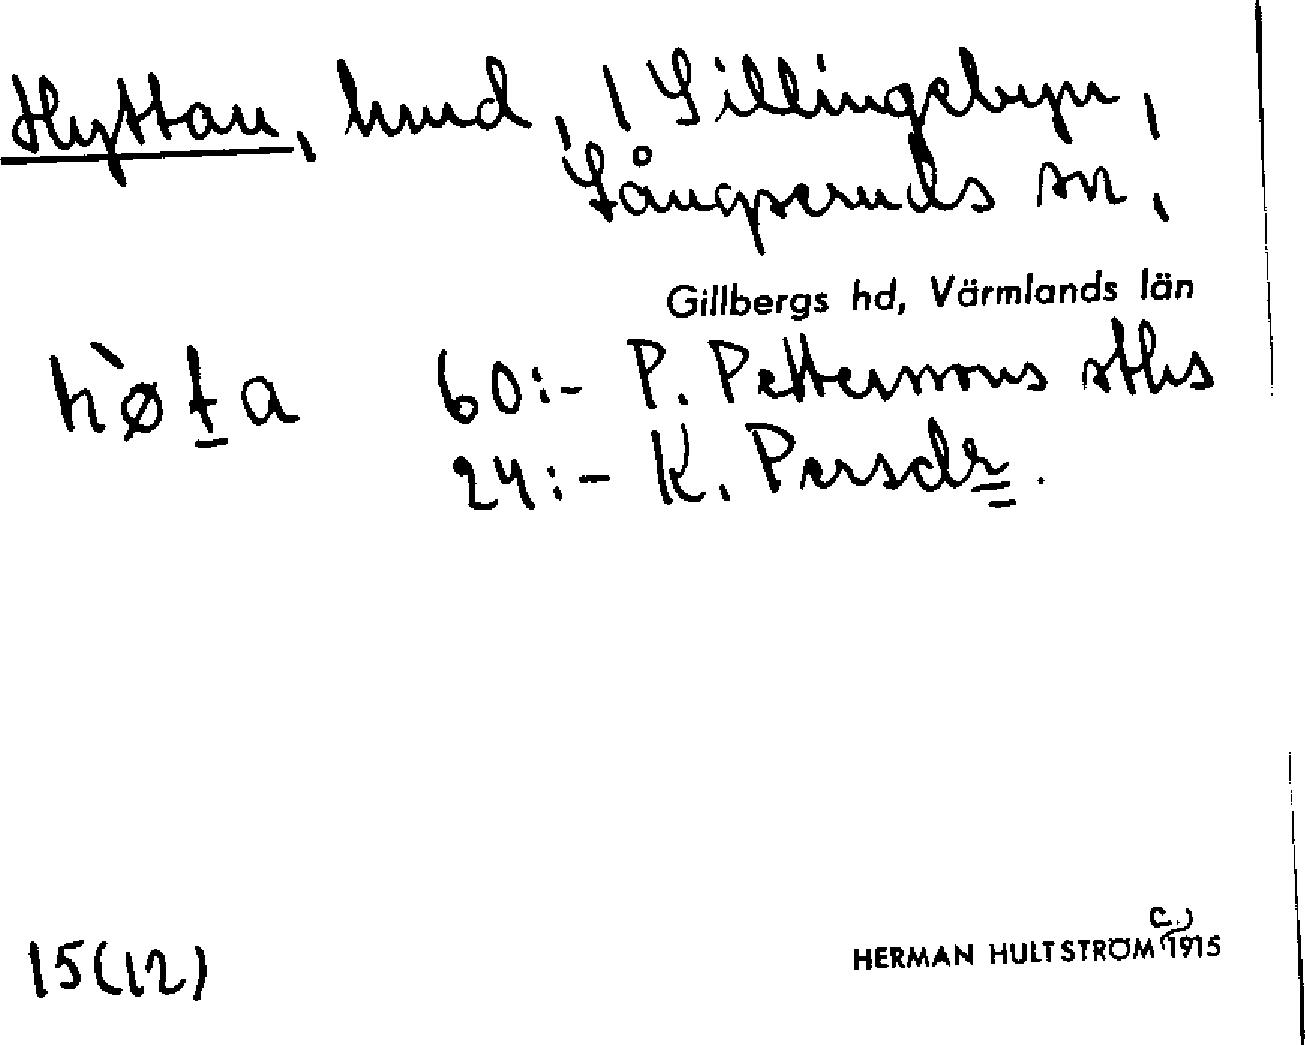 Hyttan, hmd, i Sillingebyn,
Långseruds sn,
Gillbergs hd, Värmlands län
hø̀ta 60:- P. Petterssons sths
24:- K. Persdr.
15(12)
c.)
HERMAN HULTSTRÖM 1915